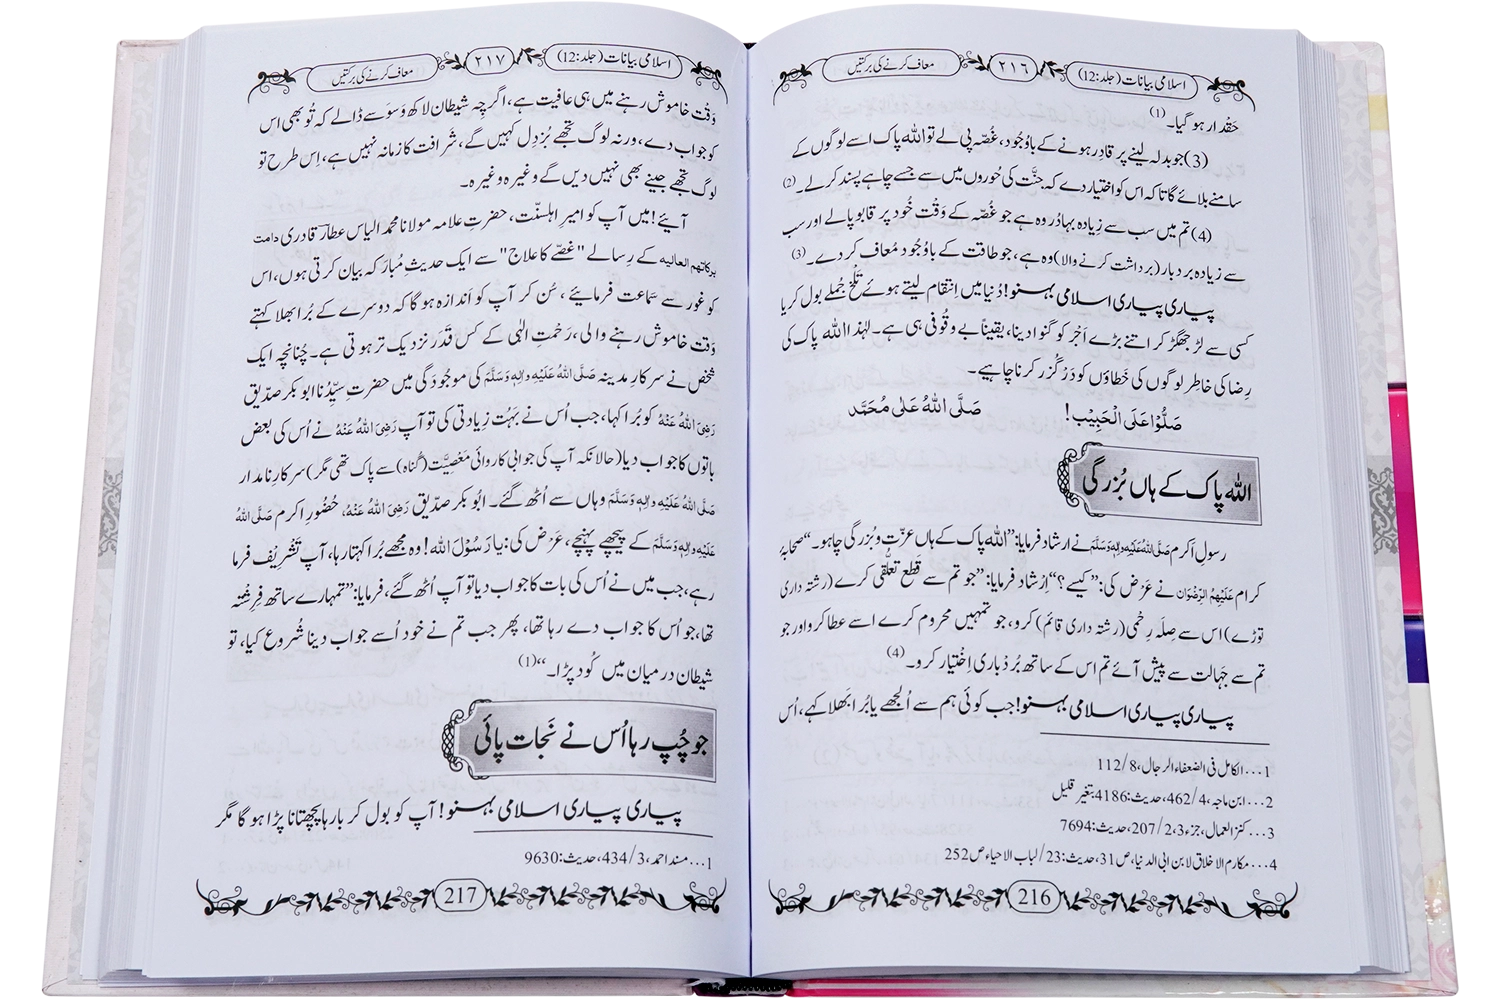 اسلامی بیانات (جلد:12)
۲۱٦
معاف کرنے کی برکتیں
حَقْدار ہو گیا۔ (1)
(3) جو بدلہ لینے پر قادِر ہونے کے باوُجُود، غُصّہ پی لے تو اللہ پاک اسے لوگوں کے
سامنے بلائے گا تاکہ اس کو اختیار دے کہ جنَّت کی حُوروں میں سے جسے چاہے پسند کر لے۔ (2)
(4) تم میں سب سے زیادہ بہادُر وہ ہے جو غُصّہ کے وَقْت خُود پر قابو پالے اور سب
سے زیادہ بردبار (برداشت کرنے والا) وہ ہے، جو طاقت کے باوُجُود مُعاف کر دے۔ (3)
پیاری پیاری اسلامی بہنو! دُنیا میں اِنتقام لیتے ہوئے تَلْخ جُملے بول کر یا
کسی سے لڑ جھگڑ کر اتنے بڑے اَجْر کو گنوا دینا، یقیناً بے وقُوفی ہی ہے۔ لہٰذا اللہ پاک کی
رِضا کی خاطِر لوگوں کی خَطاؤں کو دَرْگُزر کرنا چاہیے۔
صَلُّوْا عَلَی الْحَبِیْب! صَلَّی اللہُ عَلٰی مُحَمَّد
اللہ پاک کے ہاں بُزرگی
رسولِ اَکرم صَلَّی اللہُ عَلَیْہِ وَاٰلِہٖ وَسَلَّم نے ارشاد فرمایا: ”اللہ پاک کے ہاں عزّت و بُزرگی چاہو۔“ صحابۂ
کرام عَلَیْہِمُ الرِّضْوَان نے عَرْض کی: ”کیسے؟“ اِرْشاد فرمایا: ”جو تم سے قَطع تعلُّقی کرے (رشتہ داری
توڑے) اس سے صِلَہ رِحْمی (رشتہ داری قائم) کرو، جو تمہیں محروم کرے اسے عطا کرو اور جو
تم سے جَہالت سے پیش آئے تم اس کے ساتھ بُردْباری اِخْتیار کرو۔ (4)
پیاری پیاری اسلامی بہنو! جب کوئی ہم سے اُلجھے یا بُرا بَھلا کہے، اُس
1... الکامل فی الضعفاء الرجال، 8/112
2... ابن ماجہ، 4/462، حدیث: 4186 بتغیر قلیل
3... کنز العمال، جزء 3، 2/207، حدیث: 7694
4... مکارم الاخلاق لابن ابی الدنیا، ص 31، حدیث: 23/ لباب الاحیاء ص 252
216
اسلامی بیانات (جلد:12)
۲۱۷
معاف کرنے کی برکتیں
وَقْت خاموش رہنے میں ہی عافیت ہے، اگرچہ شیطان لاکھ وَسوَسے ڈالے کہ تُو بھی اس
کو جواب دے، ورنہ لوگ تجھے بُزدِل کہیں گے، شَرافت کا زمانہ نہیں ہے، اِس طرح تو
لوگ تجھے جینے بھی نہیں دیں گے وغیرہ وغیرہ۔
آیئے! میں آپ کو امیرِ اہلسنّت، حضرتِ علامہ مولانا محمد الیاس عطار قادری دامت
برکاتہم العالیہ کے رِسالے "غصّے کا علاج" سے ایک حدیثِ مُبارَکہ بیان کرتی ہوں، اس
کو غور سے سَماعت فرمایئے، سُن کر آپ کو اَندازہ ہو گا کہ دوسرے کے بُرا بھلا کہتے
وَقت خاموش رہنے والی، رَحْمتِ الٰہی کے کس قَدَر نزدیک تر ہوتی ہے۔ چُنانچِہ ایک
شَخْص نے سرکارِ مدینہ صَلَّی اللہُ عَلَیْہِ وَاٰلِہٖ وَسَلَّم کی موجُودگی میں حضرت سیِّدُنا ابو بکر صدّیق
رَضِیَ اللہُ عَنْہُ کو بُرا کہا، جب اُس نے بَہُت زِیادتی کی تو آپ رَضِیَ اللہُ عَنْہُ نے اُس کی بعض
باتوں کا جواب دیا (حالانکہ آپ کی جوابی کاروائی مَعْصِیَّت (گُناہ) سے پاک تھی مگر) سرکارِ نامدار
صَلَّی اللہُ عَلَیْہِ وَاٰلِہٖ وَسَلَّم وہاں سے اُٹھ گئے۔ ابُو بکر صدّیق رَضِیَ اللہُ عَنْہُ، حُضُورِ اکرم صَلَّی اللہُ
عَلَیْہِ وَاٰلِہٖ وَسَلَّم کے پیچھے پہنچے، عَرْض کی: یا رَسُوْلَ اللہ! وہ مجھے بُرا کہتا رہا، آپ تَشْرِیْف فرما
رہے، جب میں نے اُس کی بات کا جواب دیا تو آپ اُٹھ گئے، فرمایا: ”تمہارے ساتھ فِرِشْتہ
تھا، جو اُس کا جواب دے رہا تھا، پھر جب تم نے خود اُسے جواب دینا شُروع کیا، تو
شیطان درمیان میں کُود پڑا۔“ (1)
جو چُپ رہا اُس نے نَجات پائی
پیاری پیاری اسلامی بہنو! آپ کو بول کر بارہا پچھتانا پڑا ہو گا مگر
1... مسند احمد، 3/434، حدیث: 9630
217